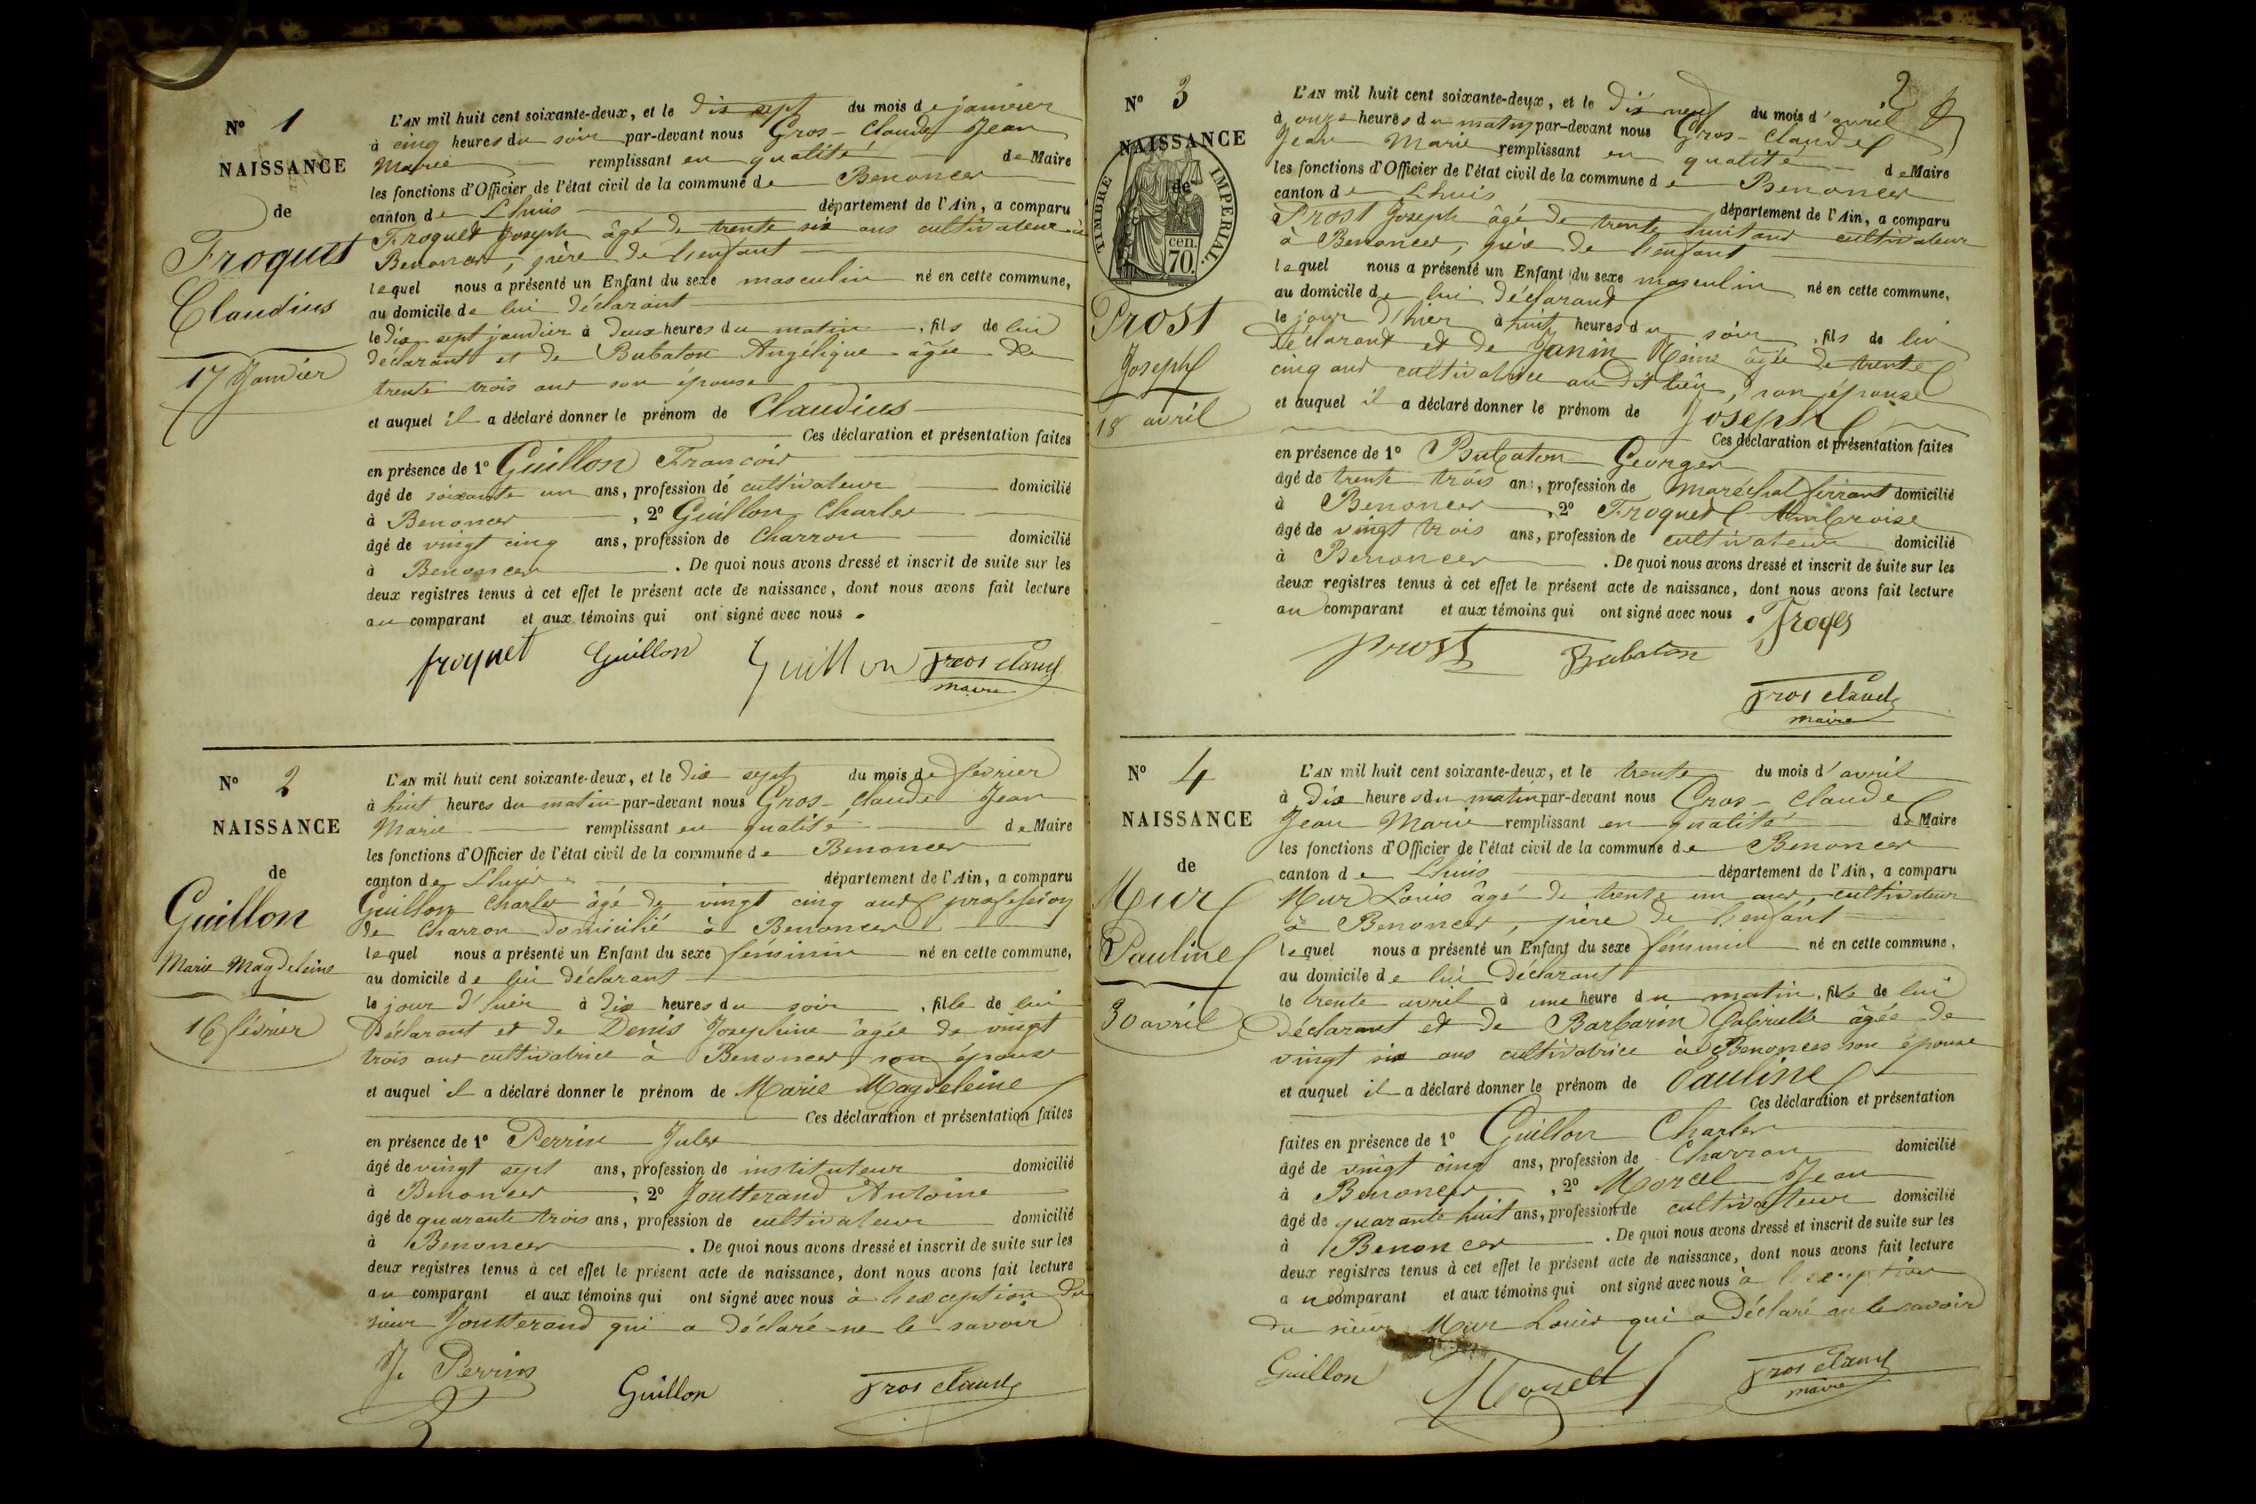 N° 1
NAISSANCE
de
Froquet
Claudius
17 Janvier
L'AN mil huit cent soixante-deux, et le dix sept du mois de janvier
à cinq heures du soir par-devant nous Gros-Claude Jean
Marie remplissant en qualité de Maire
les fonctions d'Officier de l'état civil de la commune de Benonces
canton de Lhuis département de l'Ain, a comparu
Froquet Joseph âgé de trente six ans cultivateur à
Benonces, père de l'enfant
lequel nous a présenté un Enfant du sexe masculin né en cette commune,
au domicile de lui déclarant
le dix sept janvier à deux heures du matin, fils de lui
déclarant et de Bubaton Angélique âgée de
trente trois ans son épouse
et auquel il a déclaré donner le prénom de Claudius
Ces déclaration et présentation faites
en présence de 1° Guillon François
âgé de soixante un ans, profession de cultivateur domicilié
à Benonces, 2° Guillon Charles
âgé de vingt cinq ans, profession de Charron domicilié
à Benonces. De quoi nous avons dressé et inscrit de suite sur les
deux registres tenus à cet effet le présent acte de naissance, dont nous avons fait lecture
au comparant et aux témoins qui ont signé avec nous.
froquet Guillon Guillon Gros Claude
maire
N° 2
NAISSANCE
de
Guillon
Marie Magdeleine
16 février
L'AN mil huit cent soixante-deux, et le dix sept du mois de février
à huit heures du matin par-devant nous Gros-Claude Jean
Marie remplissant en qualité de Maire
les fonctions d'Officier de l'état civil de la commune de Benonces
canton de Lhuis département de l'Ain, a comparu
Guillon Charles âgé de vingt cinq ans profession
de Charron domicilié à Benonces
lequel nous a présenté un Enfant du sexe féminin né en cette commune,
au domicile de lui déclarant
le jour d'hier à dix heures du soir, fille de lui
Déclarant et de Denis Josephine âgée de vingt
trois ans cultivatrice à Benonces son épouse
et auquel il a déclaré donner le prénom de Marie Magdeleine
Ces déclaration et présentation faites
en présence de 1° Perrin Jules
âgé de vingt sept ans, profession de instituteur domicilié
à Benonces, 2° Joutterand Antoine
âgé de quarante trois ans, profession de cultivateur domicilié
à Benonces. De quoi nous avons dressé et inscrit de suite sur les
deux registres tenus à cet effet le présent acte de naissance, dont nous avons fait lecture
au comparant et aux témoins qui ont signé avec nous à l'exception du
sieur Joutterand qui a déclaré ne le savoir
J. Perrin Guillon Gros Claude
2
N° 3
NAISSANCE
de
TIMBRE IMPERIAL.
cen.
70.
Prost
Joseph
18 avril
L'AN mil huit cent soixante-deux, et le dix neuf du mois d'avril
à onze heures du matin par-devant nous Gros-Claude
Jean Marie remplissant en qualité de Maire
les fonctions d'Officier de l'état civil de la commune de Benonces
canton de Lhuis département de l'Ain, a comparu
Prost Joseph âgé de trente huit ans cultivateur
à Benonces, père de l'enfant
lequel nous a présenté un Enfant du sexe masculin né en cette commune,
au domicile de lui déclarant
le jour d'hier à huit heures du soir, fils de lui
Déclarant et de Janin Reine âgée de trente
cinq ans cultivatrice au dit lieu, son épouse
et auquel il a déclaré donner le prénom de Joseph
Ces déclaration et présentation faites
en présence de 1° Bubaton Georges
âgé de trente trois ans, profession de maréchal ferrant domicilié
à Benonces, 2° Froquet Ambroise
âgé de vingt trois ans, profession de cultivateur domicilié
à Benonces. De quoi nous avons dressé et inscrit de suite sur les
deux registres tenus à cet effet le présent acte de naissance, dont nous avons fait lecture
au comparant et aux témoins qui ont signé avec nous.
prost Bubaton
Gros Claude
maire
N° 4
NAISSANCE
de
Mur
Pauline
30 avril
L'AN mil huit cent soixante-deux, et le trente du mois d'avril
à dix heures du matin par-devant nous Gros-Claude
Jean Marie remplissant en qualité de Maire
les fonctions d'Officier de l'état civil de la commune de Benonces
canton de Lhuis département de l'Ain, a comparu
Mur Louis âgé de trente un ans, cultivateur
à Benonces, père de l'enfant
lequel nous a présenté un Enfant du sexe féminin né en cette commune,
au domicile de lui Déclarant
le trente avril à une heure du matin, fille de lui
déclarant et de Barbarin Gabrielle âgée de
vingt six ans cultivatrice à Benonces son épouse
et auquel il a déclaré donner le prénom de Pauline
Ces déclaration et présentation
faites en présence de 1° Guillon Charles
âgé de vingt cinq ans, profession de Charron domicilié
à Benonces, 2° Morcel Jean
âgé de quarante huit ans, profession de cultivateur domicilié
à Benonces. De quoi nous avons dressé et inscrit de suite sur les
deux registres tenus à cet effet le présent acte de naissance, dont nous avons fait lecture
au comparant et aux témoins qui ont signé avec nous à l'exception
du sieur Mur Louis qui a Déclaré ne le savoir
Guillon Gros Claude
maire